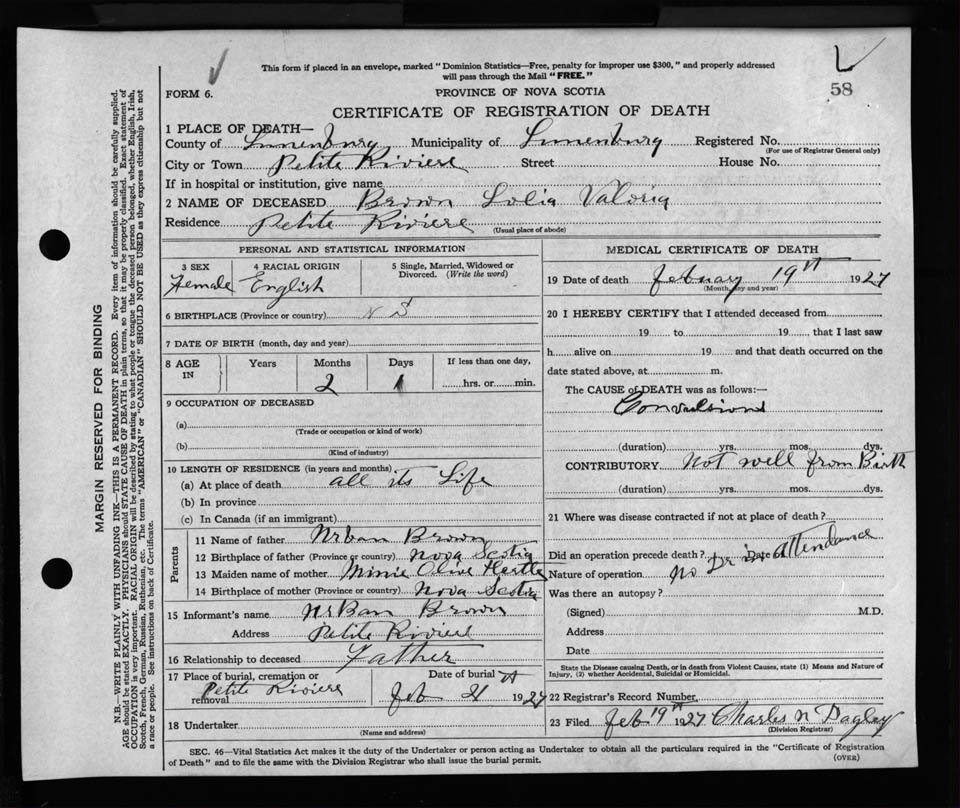 This form if placed in an envelope, marked "Dominion Statistics—Free, penalty for improper use $300," and properly addressed
will pass through the Mail "FREE."
58
FORM 6.
PROVINCE OF NOVA SCOTIA
CERTIFICATE OF REGISTRATION OF DEATH
1 PLACE OF DEATH—
County of Lunenburg Municipality of Lunenburg Registered No.
(For use of Registrar General only)
City or Town Petite Riviere Street House No.
If in hospital or institution, give name
2 NAME OF DECEASED Brown Lolia
Residence Petite Riviere
(Usual place of abode)
PERSONAL AND STATISTICAL INFORMATION
3 SEX 4 RACIAL ORIGIN 5 Single, Married, Widowed or Divorced. (Write the word)
Female English
6 BIRTHPLACE (Province or country) N S
7 DATE OF BIRTH (month, day and year)
8 AGE IN Years Months Days If less than one day,
2 1 hrs. or min.
9 OCCUPATION OF DECEASED
(a)
(Trade or occupation or kind of work)
(b)
(Kind of industry)
10 LENGTH OF RESIDENCE (in years and months)
(a) At place of death all its Life
(b) In province
(c) In Canada (if an immigrant)
Parents
11 Name of father Urban Brown
12 Birthplace of father (Province or country) Nova Scotia
13 Maiden name of mother Minie Olive Hartle
14 Birthplace of mother (Province or country) Nova Scotia
15 Informant's name Urban Brown
Address Petite Riviere
16 Relationship to deceased Father
17 Place of burial, cremation or removal Date of burial
Petite Riviere Feb 21 st 1927
18 Undertaker
(Name and address)
MEDICAL CERTIFICATE OF DEATH
19 Date of death Febuary 19th 1927
(Month, day and year)
20 I HEREBY CERTIFY that I attended deceased from
19 to 19 that I last saw
h alive on 19 and that death occurred on the
date stated above, at m.
The CAUSE of DEATH was as follows:—
Convulsions
(duration) yrs. mos. dys.
CONTRIBUTORY Not well from Birth
(duration) yrs. mos. dys.
21 Where was disease contracted if not at place of death?
Did an operation precede death? Date
Nature of operation No Dr in attendance
Was there an autopsy?
(Signed) M.D.
Address
Date
State the Disease causing Death, or in death from Violent Causes, state (1) Means and Nature of
Injury, (2) whether Accidental, Suicidal or Homicidal.
22 Registrar's Record Number
23 Filed Feb 19th 1927 Charles N Dagley
(Division Registrar)
SEC. 46—Vital Statistics Act makes it the duty of the Undertaker or person acting as Undertaker to obtain all the particulars required in the "Certificate of Registration
of Death" and to file the same with the Division Registrar who shall issue the burial permit.
(OVER)
MARGIN RESERVED FOR BINDING
N.B.—WRITE PLAINLY WITH UNFADING INK—THIS IS A PERMANENT RECORD. Every item of information should be carefully supplied.
AGE should be stated EXACTLY. PHYSICIANS should STATE CAUSE OF DEATH in plain terms, so that it may be properly classified. Exact statement of
OCCUPATION is very important. RACIAL ORIGIN will be described by stating to what people or tongue the deceased person belonged, whether English, Irish,
Scotch, French, German, Russian, Ruthenian, etc. The terms "AMERICAN" or "CANADIAN" SHOULD NOT BE USED as they express citizenship but not
a race or people. See instructions on back of Certificate.